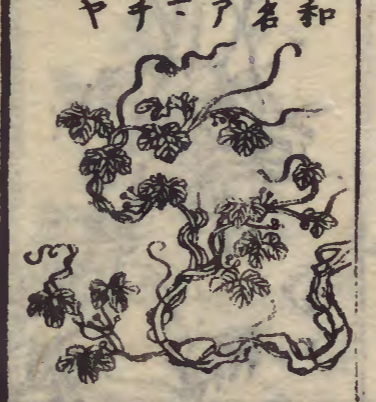 和名アマチヤ